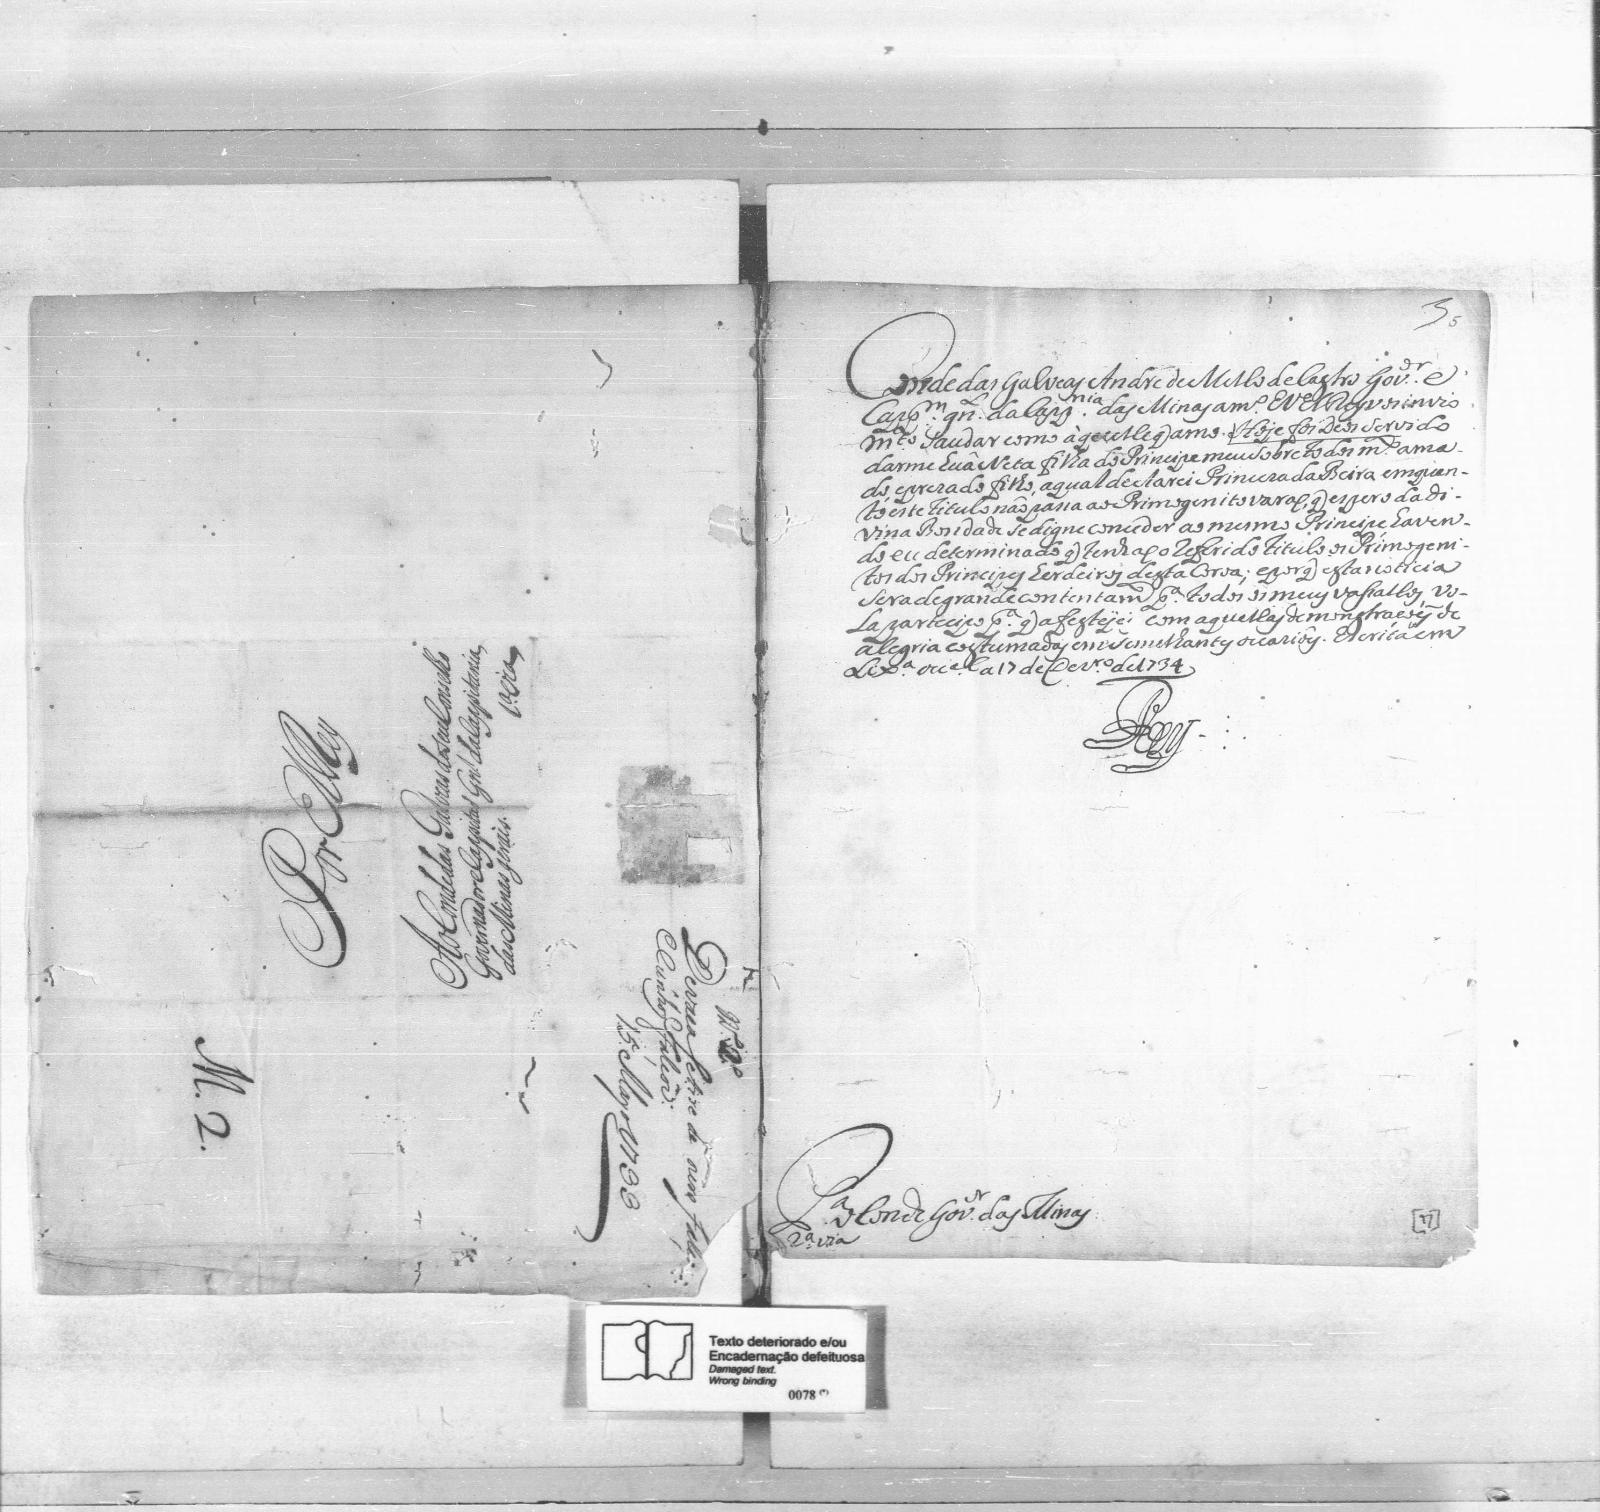 Por ElRey
Ao Conde das Galveas do seu Conselho
Governador e Capitaõ Gnl. da Capitania
das Minas geraes.
1.ª via
M. 2.
N.º 2º
15 de Mayo 1733
5
Conde das Galveas Andrè de Mello de Castro Gov.ᵒʳ e
Capp.ᵐ gn.ˡ da Capp.ⁿⁱᵃ das Minas am.º Eu ElRey vos invio
m.ᵗᵒ saudar como àquelle q̃ amo. Hoje foi Deos servido
darme huã Neta filha do Principe meu sobre todos m.ᵗᵒ ama-
do, eprezado filho, aqual declarei Princeza da Beira emquan-
to este titulo naõ passa ao Primogenito varaõ, q̃ espero da Di-
vina Bondade se digne conceder ao mesmo Principe haven-
do eu determinado q̃ tenhaõ o referido titulo os Primogeni-
tos dos Principes herdeiros desta Coroa; eporq̃ esta noticia
sera de grande contentam.ᵗᵒ p.ª todos os meus vassallos, vo-
la partecipo p.ª q̃ a festejeis com aquellas demonstraçoẽs de
alegria costumadas em semelhantes occazioẽs. Escrita em
Lix.ª occ.ᵃˡ a 17 de Dezr.º de 1734
Rey
P.ª o Conde Gov.ᵒʳ das Minas
2ª via
[77]
Texto deteriorado e/ou
Encadernação defeituosa
Damaged text.
Wrong binding
0078 (*)